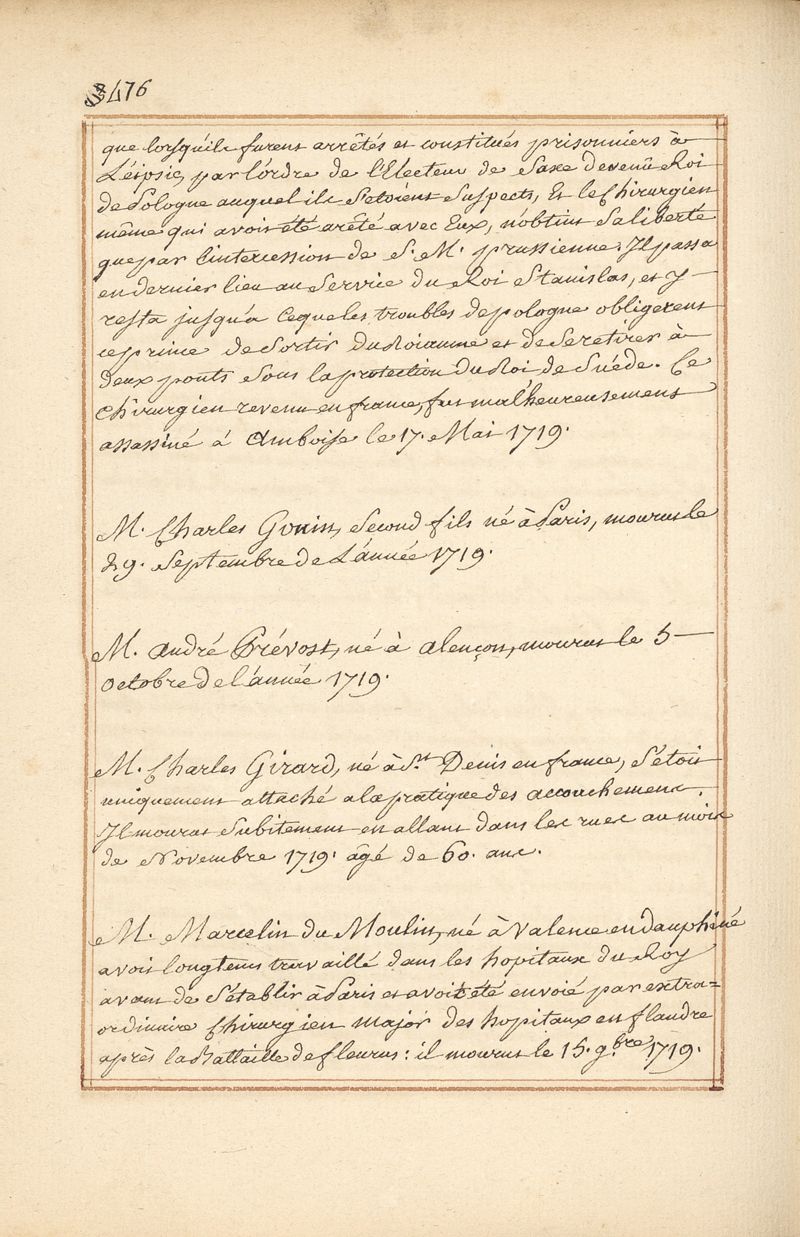 476
que lorsqu'ils furent arrêtés et constitués prisonniers à
Léipsic, par l'ordre de l'Electeur de Saxe devenû Roi
de Pologne auquel ils s'etoient suspects, Et le Chirurgien
même qui avoit été arêté avec Eux, n'obtint sa liberté
que par l'intercession de S. M. prussienne. Il passa
en dernier lieu au Service du Roi Stanislas, et y
resta jusqu'a ce que les troubles de pologne obligerent
ce prince de sortir du Roiaume et de se retirer à
deux ponts sous la protection du Roi de Suéde. Ce
Chirurgien revenu en france, fut malheureusement
assassiné à Amboise le 17. Mai 1719.
M. Charles Gouin, second fils né à Paris, mourut le
29. Septembre de L'année 1719.
M. André Prévost, né à alençon, mourut le 5
octobre de l'année 1719.
M. Charles Girard, né à St Denis en france, s'étoit
uniquement attaché a la pratique des accouchemens.
Il mourut subitement en allant dans les rues au mois
de Novembre 1719. âgé de 60. ans.
M. Marcelin du Moulin, né à Valence en dauphiné
avoit longtems travaillé dans les hopitaux du Roy
avant de s'établir à Paris et avoit été envoié par extra=
ordinaire Chirurgien major des hopitaux en flandre
après la Battaille de fleurus: il mourut le 15. 9.bre 1719.